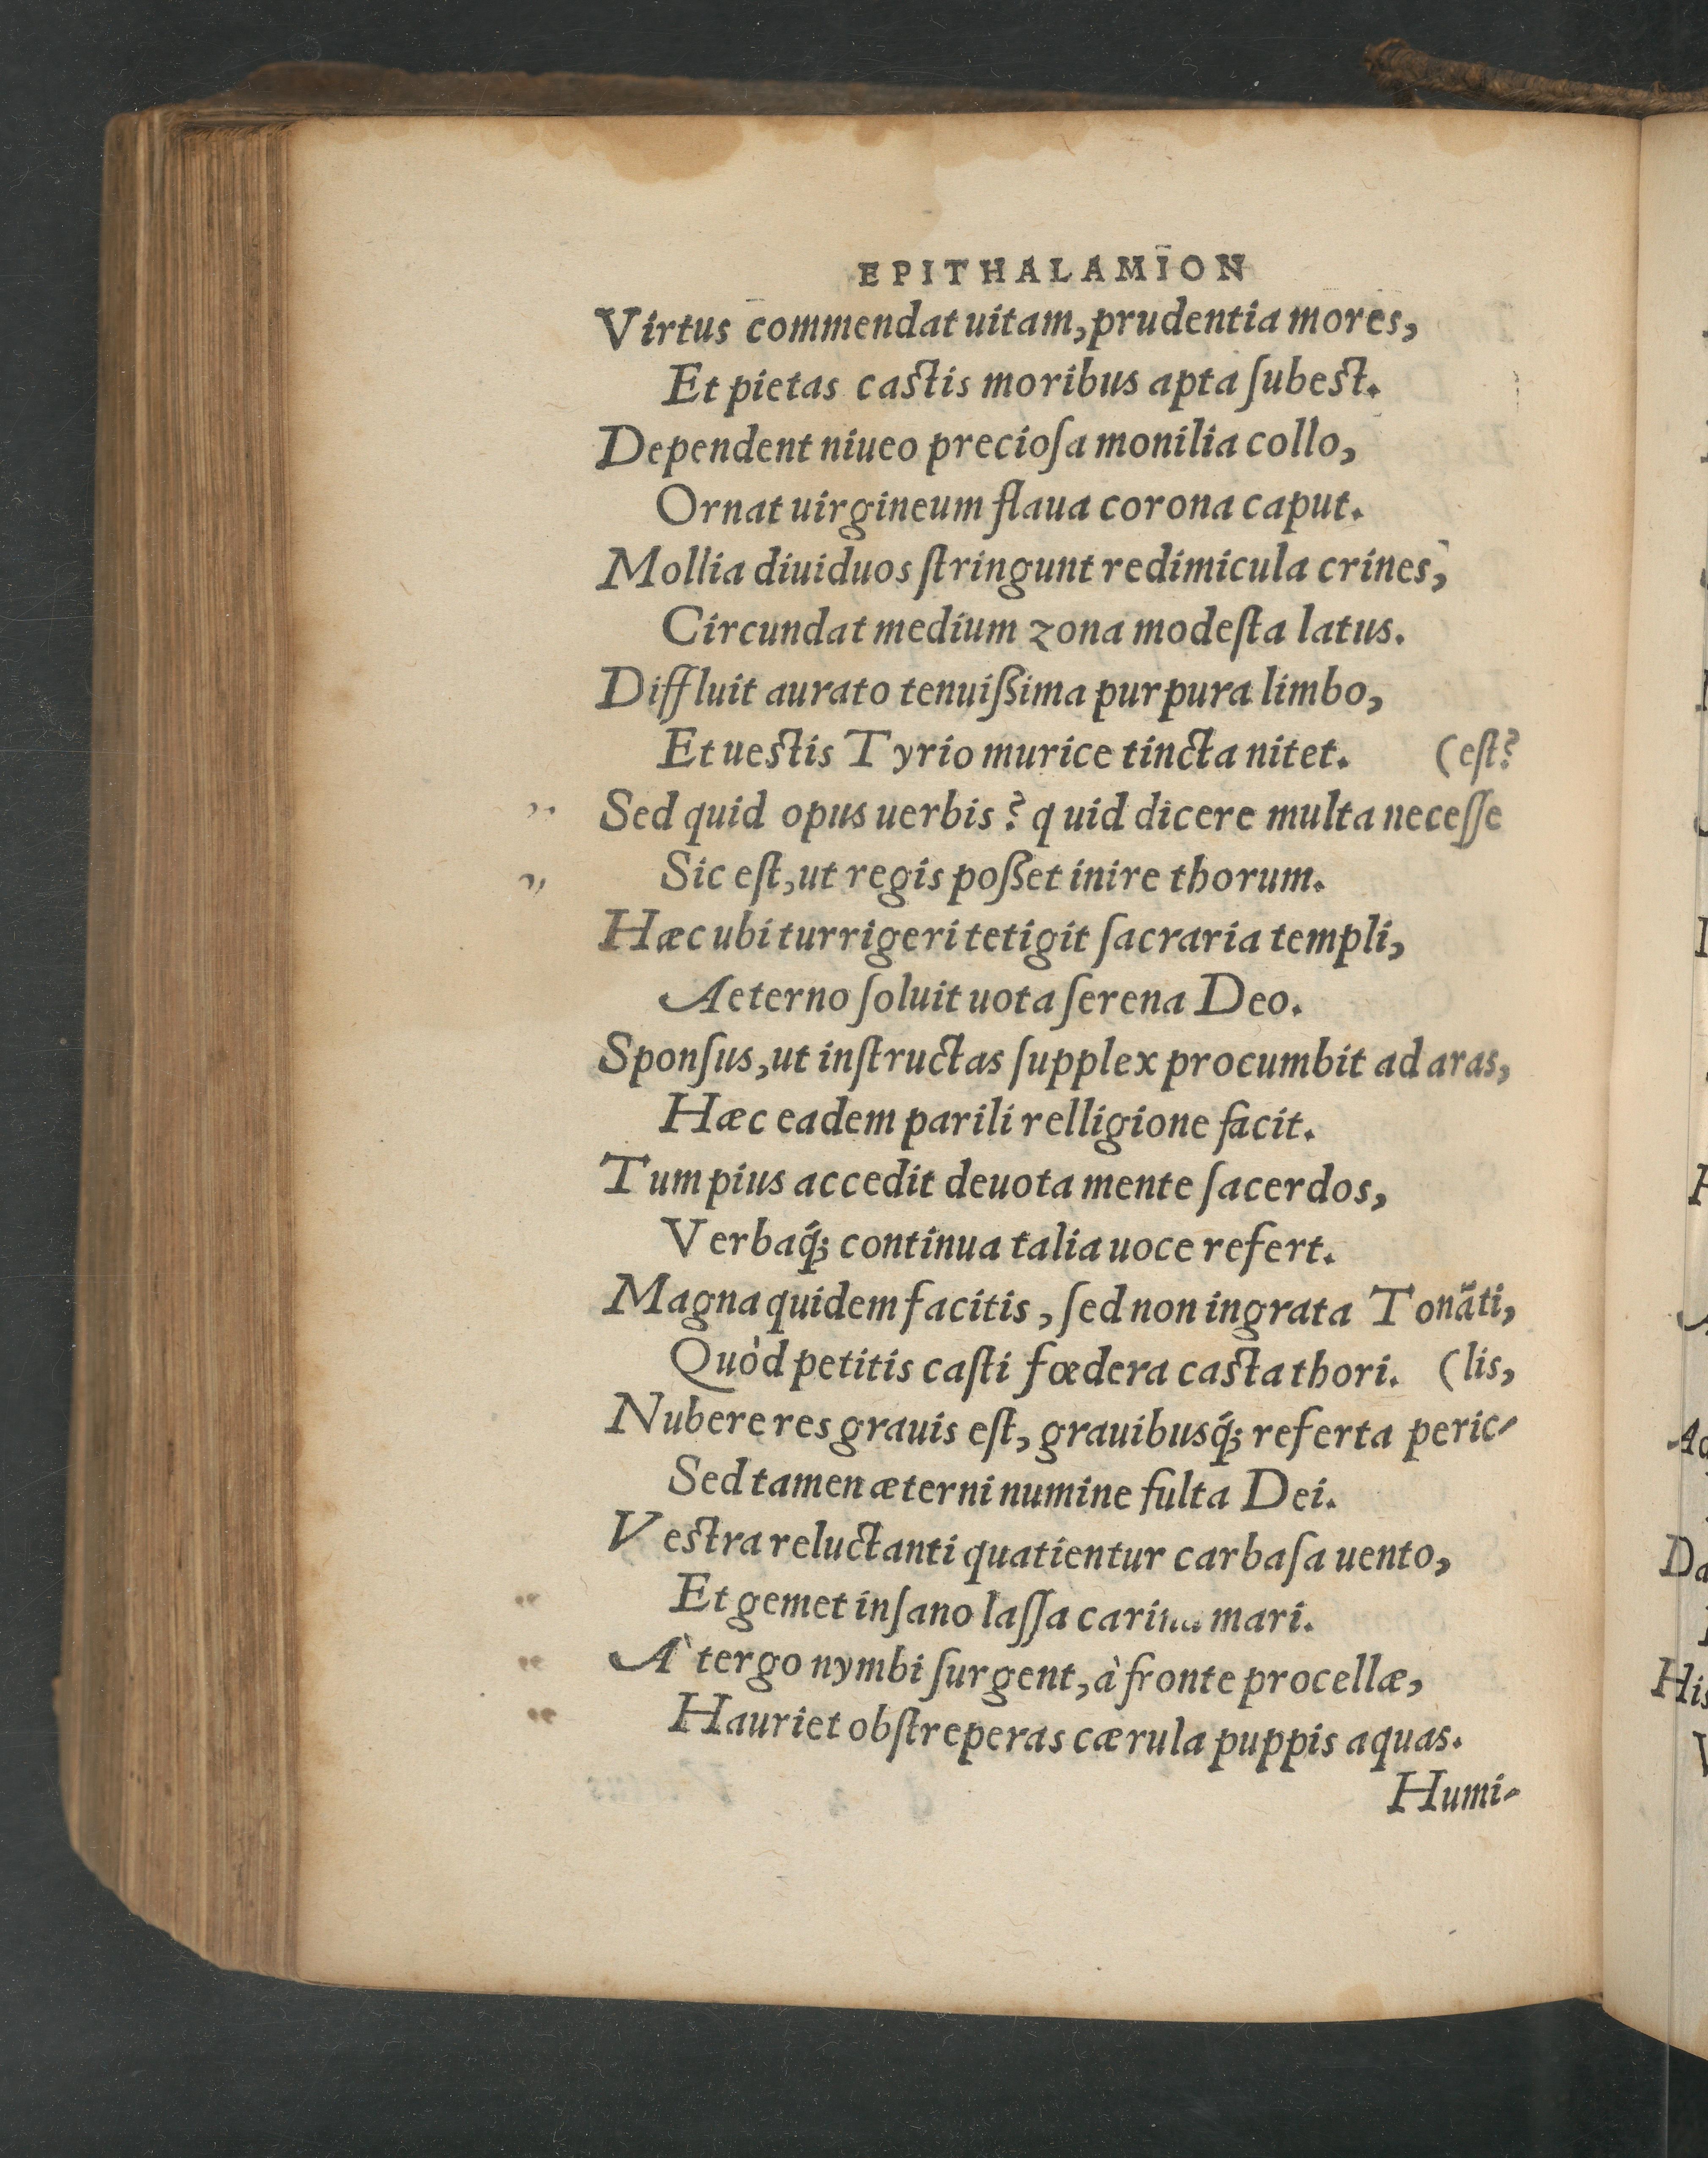 EPITHALAMION
Virtus commendat uitam, prudentia mores,
Et pietas castis moribus apta ſubest.
Dependent niueo precioſa monilia collo,
Ornat uirgineum flaua corona caput.
Mollia diuiduos ſtringunt redimicula crines,
Circundat medium zona modeſta latus.
Diffluit aurato tenuißima purpura limbo,
Et uestis Tyrio murice tincta nitet. (eſt?
„ Sed quid opus uerbis? quid dicere multa neceſſe
„ Sic eſt, ut regis poßet inire thorum.
Hæc ubi turrigeri tetigit ſacraria templi,
Aeterno ſoluit uota ſerena Deo.
Sponſus, ut inſtructas ſupplex procumbit ad aras,
Hæc eadem parili relligione facit.
Tum pius accedit deuota mente ſacerdos,
Verbaq́; continua talia uoce refert.
Magna quidem facitis, ſed non ingrata Tonãti,
Quòd petitis caſti fœdera casta thori. (lis,
Nubere res grauis eſt, grauibusq́; referta peric-
Sed tamen æterni numine fulta Dei.
Vestra reluctanti quatientur carbaſa uento,
“ Et gemet inſano laſſa carina mari.
“ À tergo nymbi ſurgent, à fronte procellæ,
“ Hauriet obſtreperas cærula puppis aquas.
Humi-